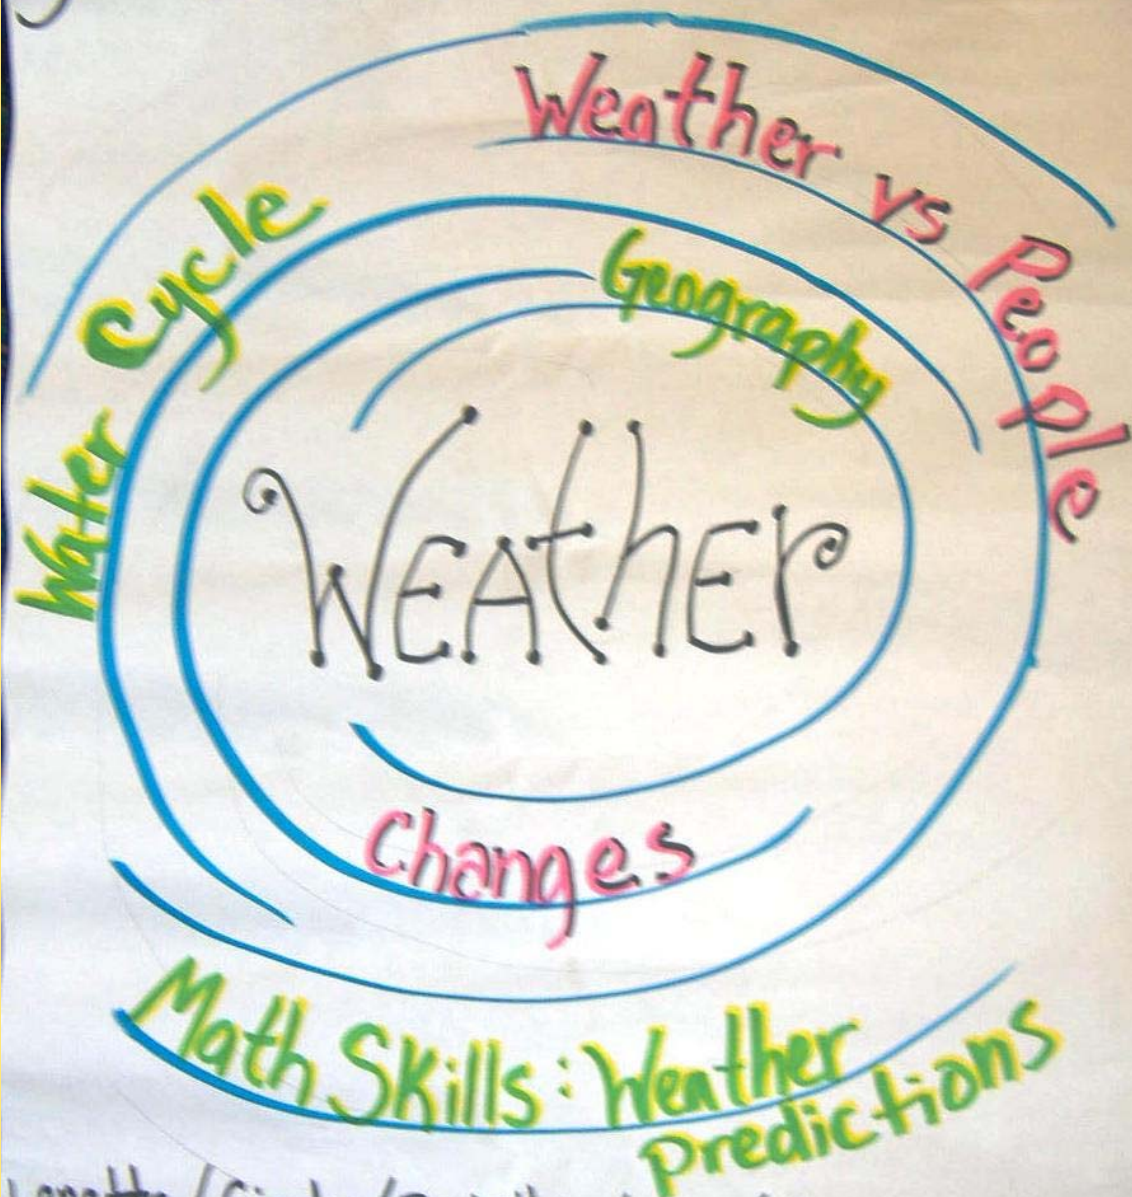 Weather vs People
Water Cycle
Geography
WEAthEr
Changes
Math Skills: Weather
predictions